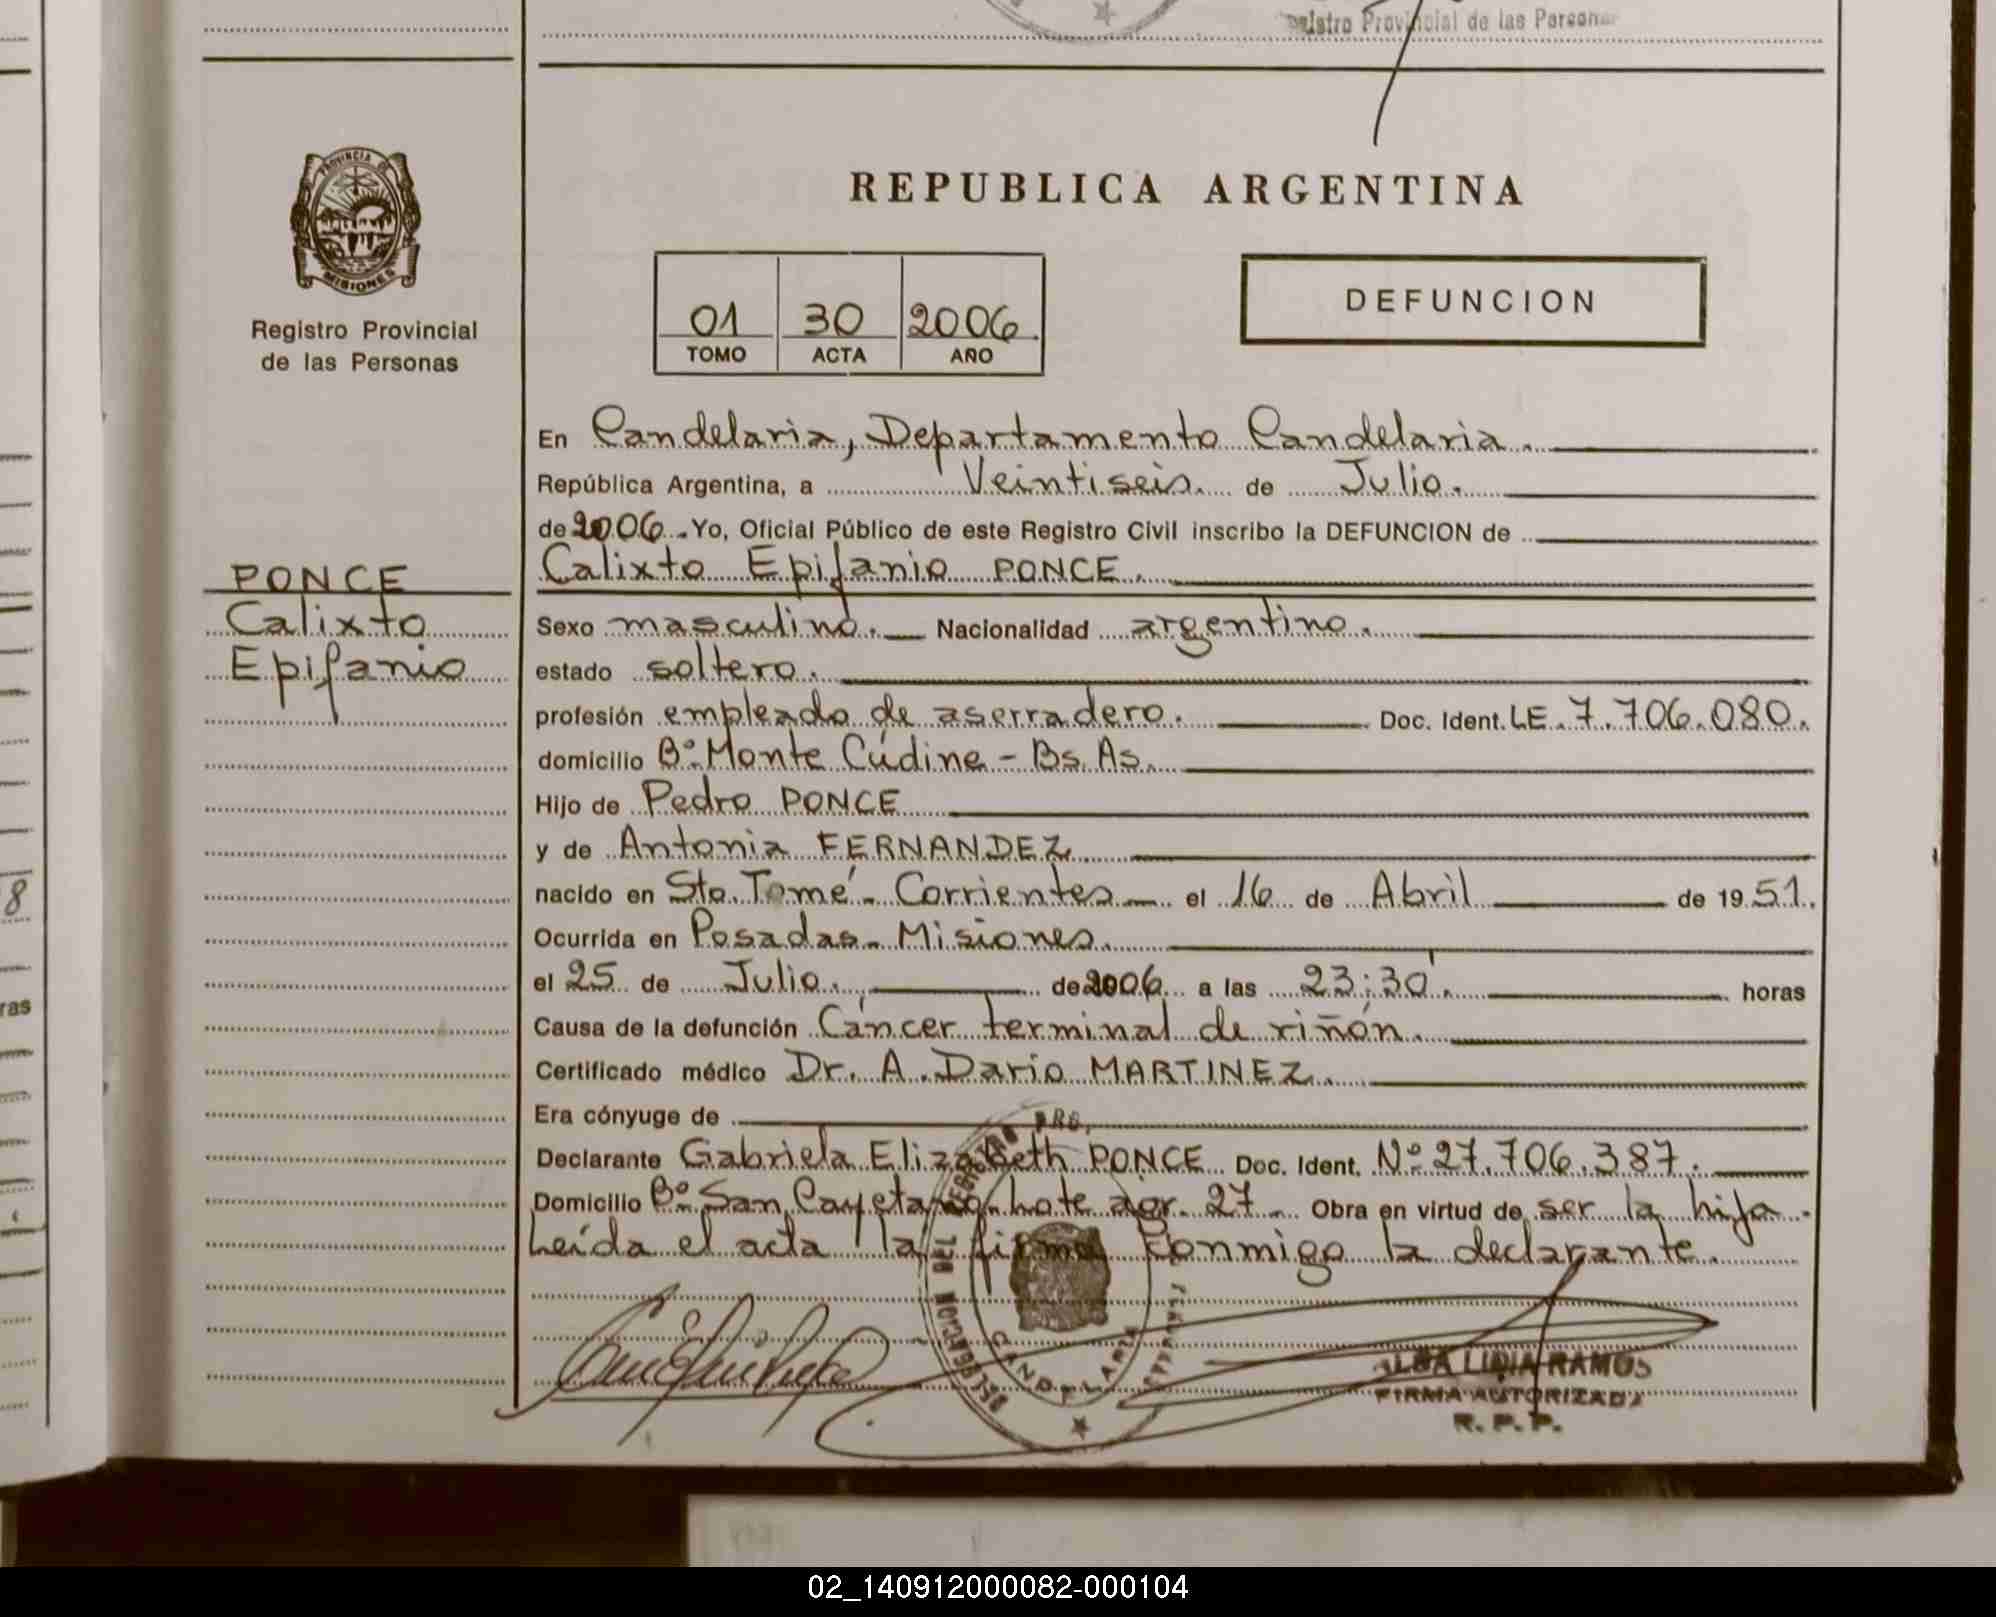 Registro Provincial de las Personas
PROVINCIA DE
MISIONES
Registro Provincial
de las Personas
REPUBLICA ARGENTINA
01 30 2006
TOMO ACTA AÑO
DEFUNCION
PONCE
Calixto
Epifanio
En Candelaria, Departamento Candelaria.
República Argentina, a Veintiseis. de Julio.
de 2006. Yo, Oficial Público de este Registro Civil inscribo la DEFUNCION de
Calixto Epifanio PONCE.
Sexo masculino. Nacionalidad argentino.
estado soltero.
profesión empleado de aserradero. Doc. Ident. LE. 7.706.080.
domicilio Bº Monte Cúdine - Bs. As.
Hijo de Pedro PONCE
y de Antonia FERNANDEZ
nacido en Sto. Tomé - Corrientes el 16 de Abril de 1951.
Ocurrida en Posadas - Misiones.
el 25 de Julio. de 2006 a las 23:30. horas
Causa de la defunción Cáncer terminal de riñón.
Certificado médico Dr. A. Dario MARTINEZ.
Era cónyuge de
Declarante Gabriela Elizabeth PONCE Doc. Ident. Nº 27.706.387.
Domicilio Bº San Cayetano Lote agr. 27 - Obra en virtud de ser la hija.
Leída el acta la firma conmigo la declarante.
DELEGACION DEL REGISTRO PRO.
CANDELARIA
LIDIA RAMOS
FIRMA AUTORIZADA
R. P. P.
8
ras
02_140912000082-000104